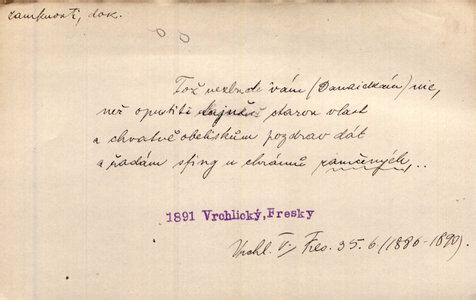 zamknouti, dok.
Tož nezbude vám (Danaidkám) nic,
než opustiti tajnůstě starou vlast
a chvatně obeliskům pozdrav dát
a řadám sfing u chrámů zamčených,..
1891 Vrchlický, Fresky
Vrchl. V., Fres. 35.6 (1880-1890).